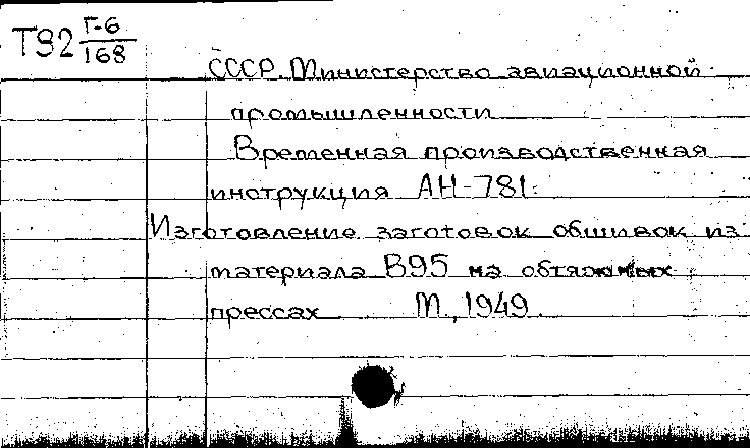 Т92 Г-6
168
СССР. Министерство авиационной
промышленности
Временная производственная
инструкция АН-781:
Изготовление заготовок обшивок из
материала В95 на обтяжных
прессах М, 1949.